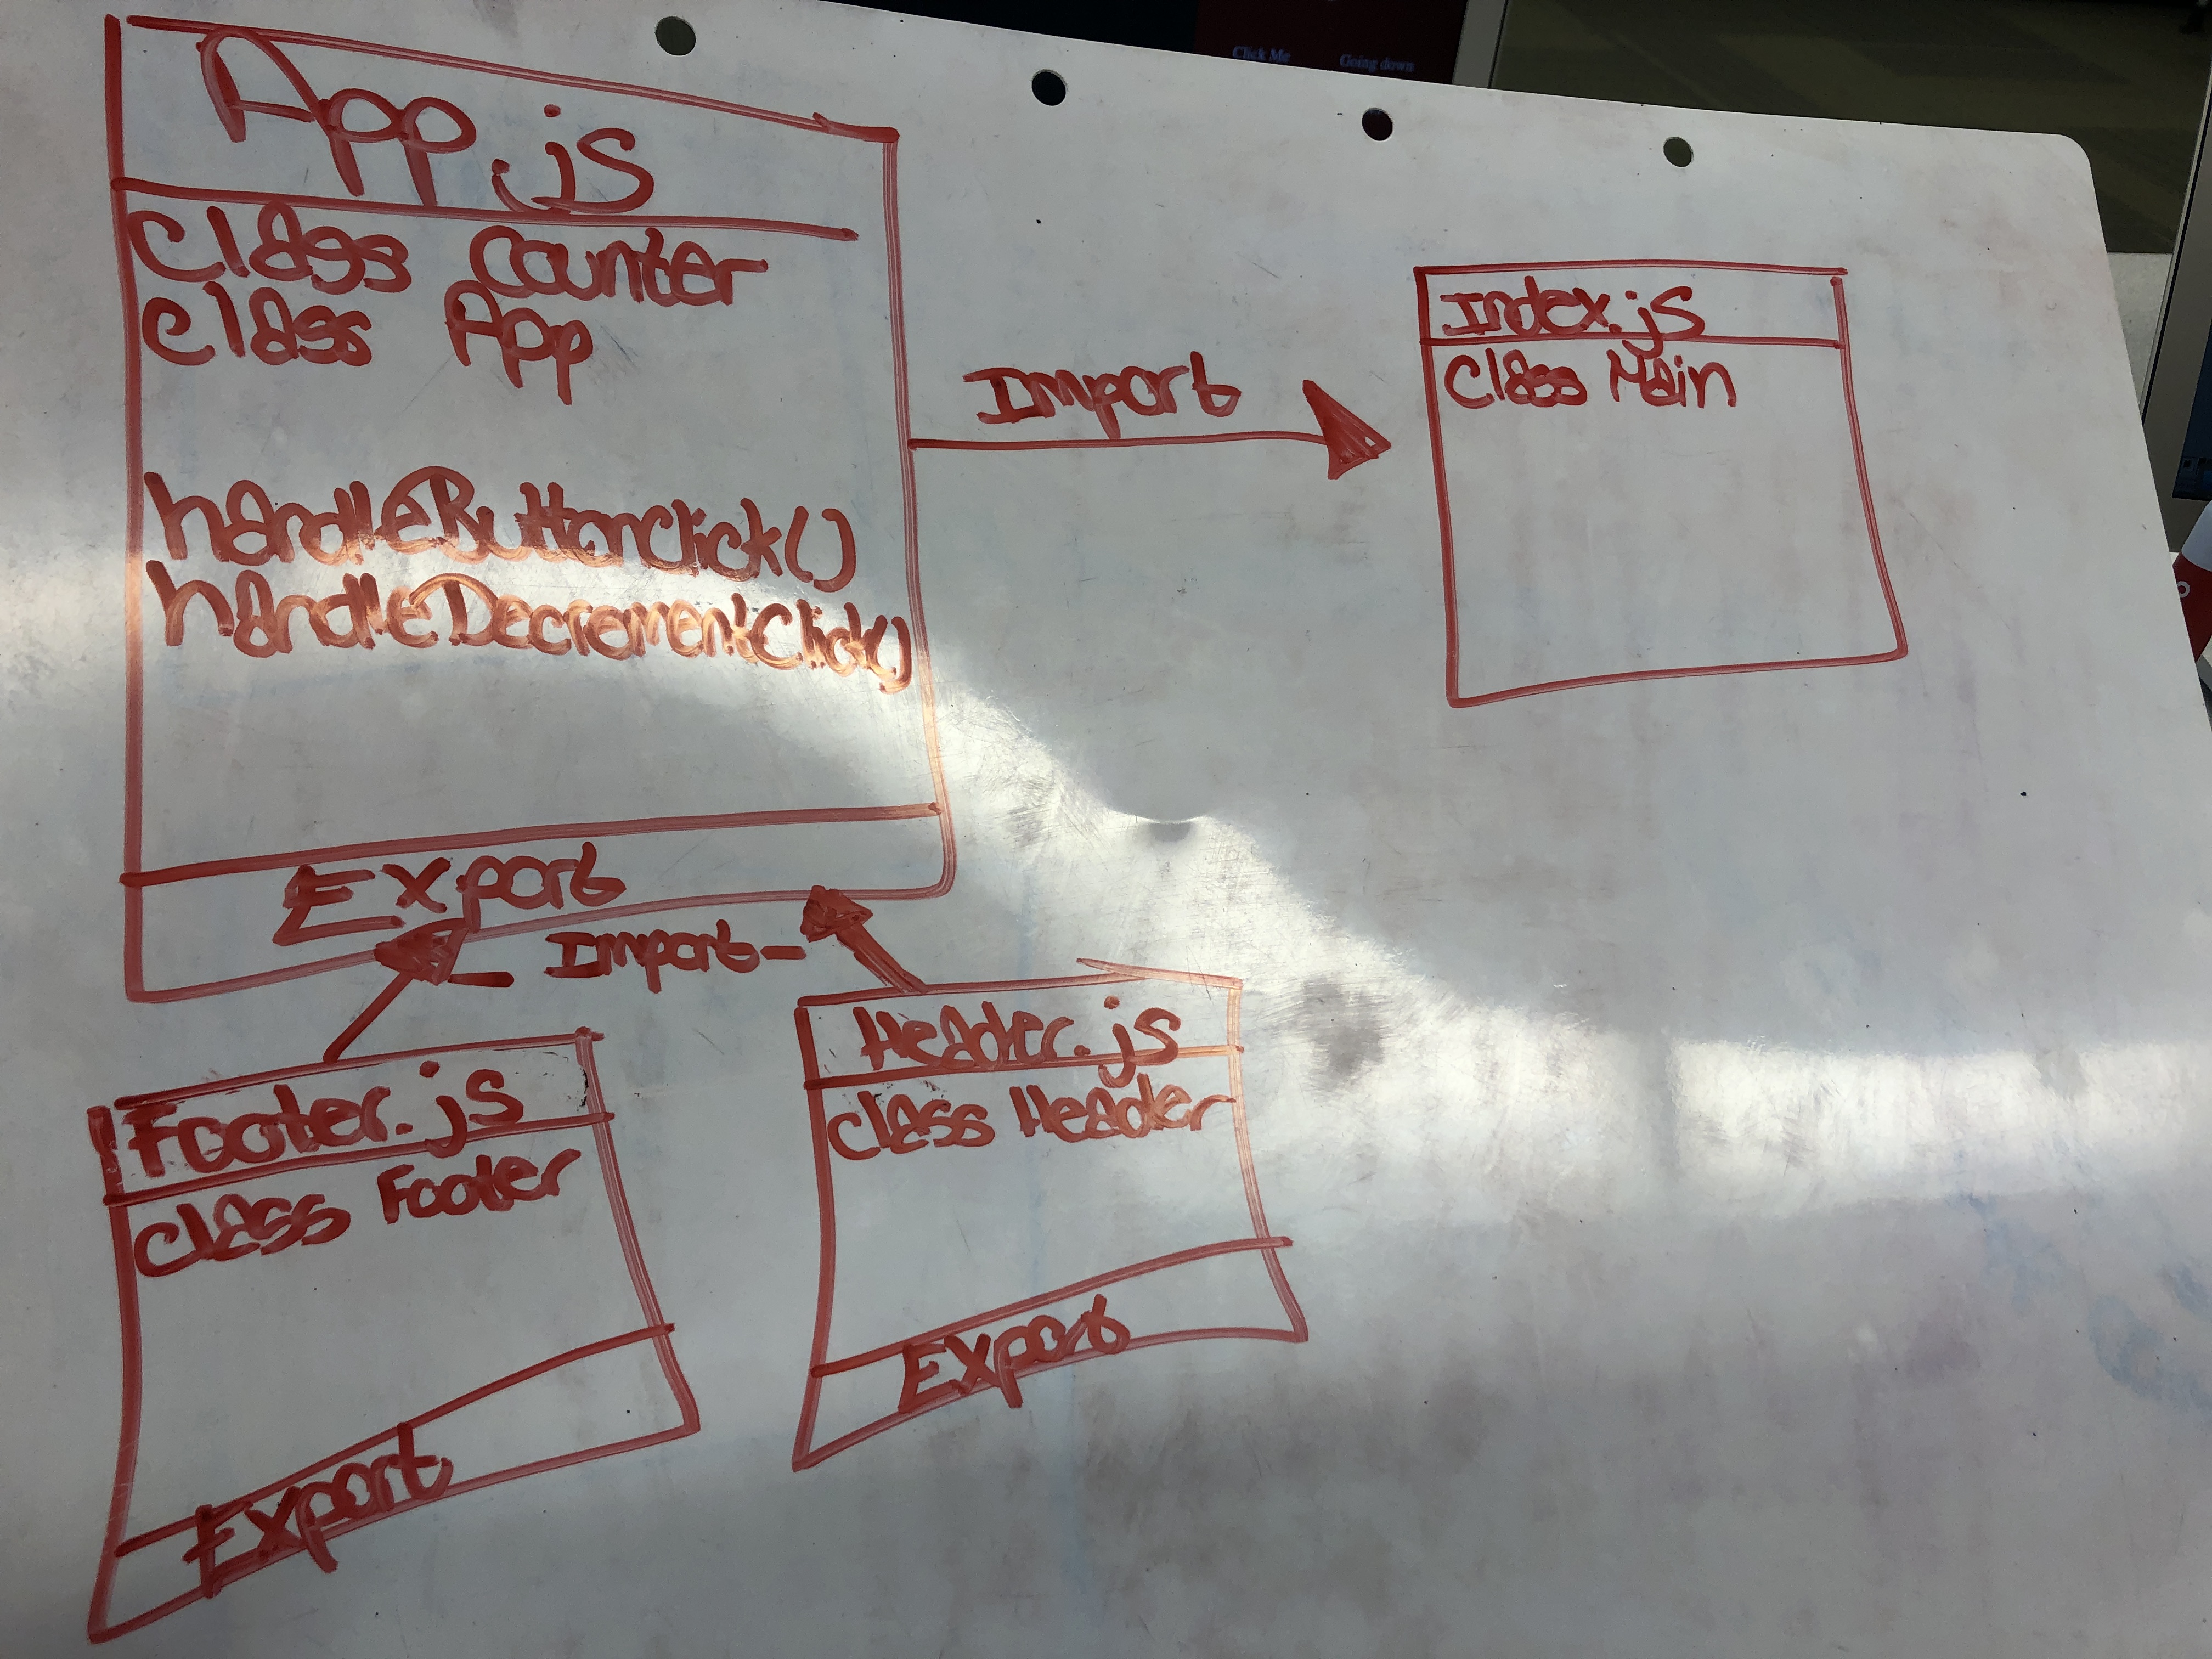 Click Me
Going down
App.js
Class Counter
Class App
handleButtonClick()
handleDecrementClick()
Export
Import
Index.js
Class Main
Import
Footer.js
Class Footer
Export
Header.js
Class Header
Export